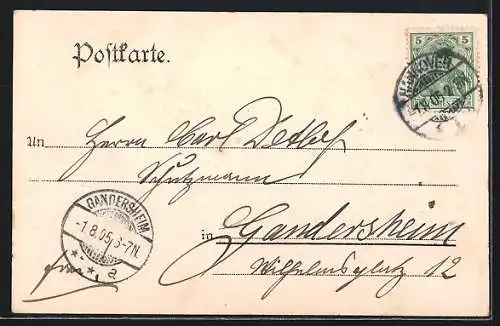 5 5
Postkarte.
HANNOVER
1.8.05.
An Herrn Carl Detlef
Schutzmann
GANDERSHEIM
-1.8.05, 3-7N.
* * a
in Gandersheim
Wilhelmsplatz 12